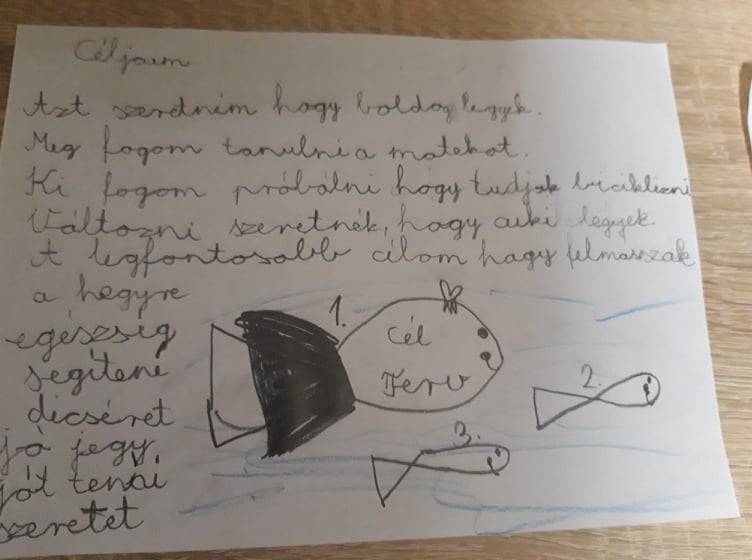 Céljaim
Azt szeretném hogy boldog legyek.
Meg fogom tanulni a matekot.
Ki fogom próbálni hogy tudjak biciklizni
Változni szeretnék, hogy cuki legyek.
A legfontosabb célom hagy felmasszak
a hegyre
egészség
segíteni
dicséret
jó jegy,
jót tenni
szeretet
1.
Cél
Terv
2.
3.